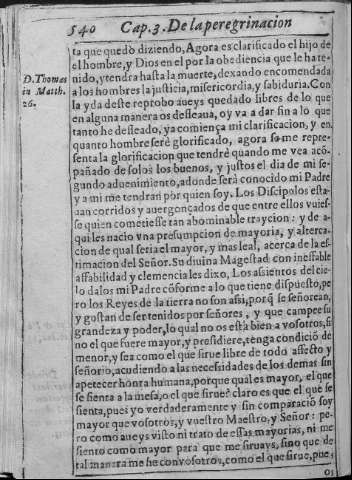 540 Cap. 3. De la peregrinacion
ta que quedò diziendo, Agora es clarificado el hijo de
el hombre, y Dios en el por la obediencia que le ha te-
D. Thomas
nido, y tendra hasta la muerte, dexando encomendada
in Matth.
a los hombres la justicia, misericordia, y sabiduria. Con
26.
la yda deste reprobo aueys quedado libres de lo que
en alguna manera os desseaua, oy va a dar fin a lo que
tanto he desseado, ya comiença mi clarificacion, y en
quanto hombre serè glorificado, agora se me repre-
senta la glorificacion que tendrè quando me vea acõ-
pañado de solos los buenos, y justos el dia de mi se-
gundo aduenimiento, adonde serà conocido mi Padre
y a mi me tendran por quien soy. Los Discipulos esta-
uan corridos y auergonçados de que entre ellos vuies-
se quien cometiesse tan abominable traycion: y de a-
qui les nacio vna presumpcion de mayoria, y alterca-
cion de qual seria el mayor, y mas leal, acerca de la es-
timacion del Señor. Su diuina Magestad con ineffable
affabilidad y clemencia les dixo, Los assientos del cie-
lo dalos mi Padre cõforme a lo que tiene dispuesto, pe
ro los Reyes de la tierra no son assi, porq̃ se señorean,
y gustan de ser tenidos por señores, y que campee su
grandeza y poder, lo qual no os està bien a vosotros, si
no el que fuere mayor, y presidiere, tenga condiciõ de
menor, y sea como el que sirue libre de todo affecto y
señorio, acudiendo a las necessidades de los demas sin
apetecer hõnra humana, porque qual es mayor, el que
se sienta a la mesa, o el que sirue? claro es que el que se
sienta, pues yo verdaderamente y sin comparaciõ soy
mayor que vosotros, y vuestro Maestro, y Señor: pe-
ro como aueys visto ni trato de essas mayorias, ni me
siento como mayor para que me siruays, sino que de
tal manera me he con vosotros, como el que sirue, pues
os